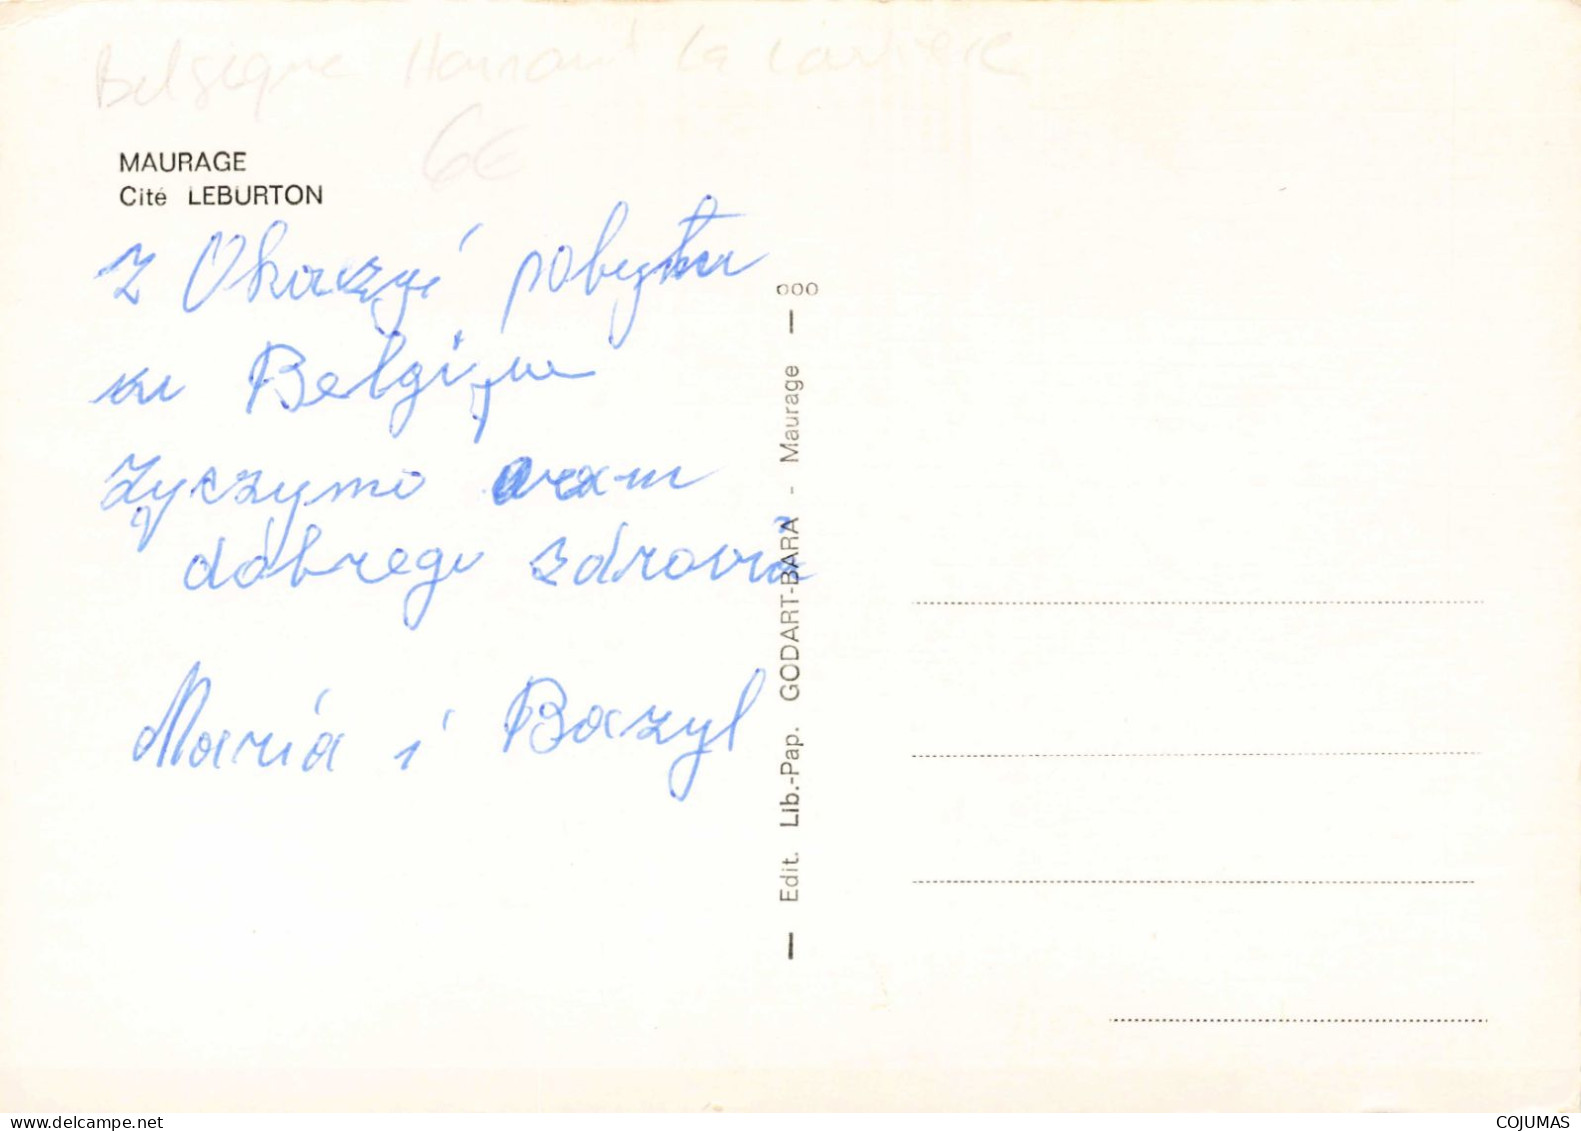 Belgique Hainaut La Louvière
6€
MAURAGE
Cité LEBURTON
Z Okazyi pobytu
w Belgique
życzymo wam
dobrego zdrowia
Maria i Bazyl
— Edit. Lib.-Pap. GODART-BARA - Maurage — 000
delcampe.net
COJUMAS